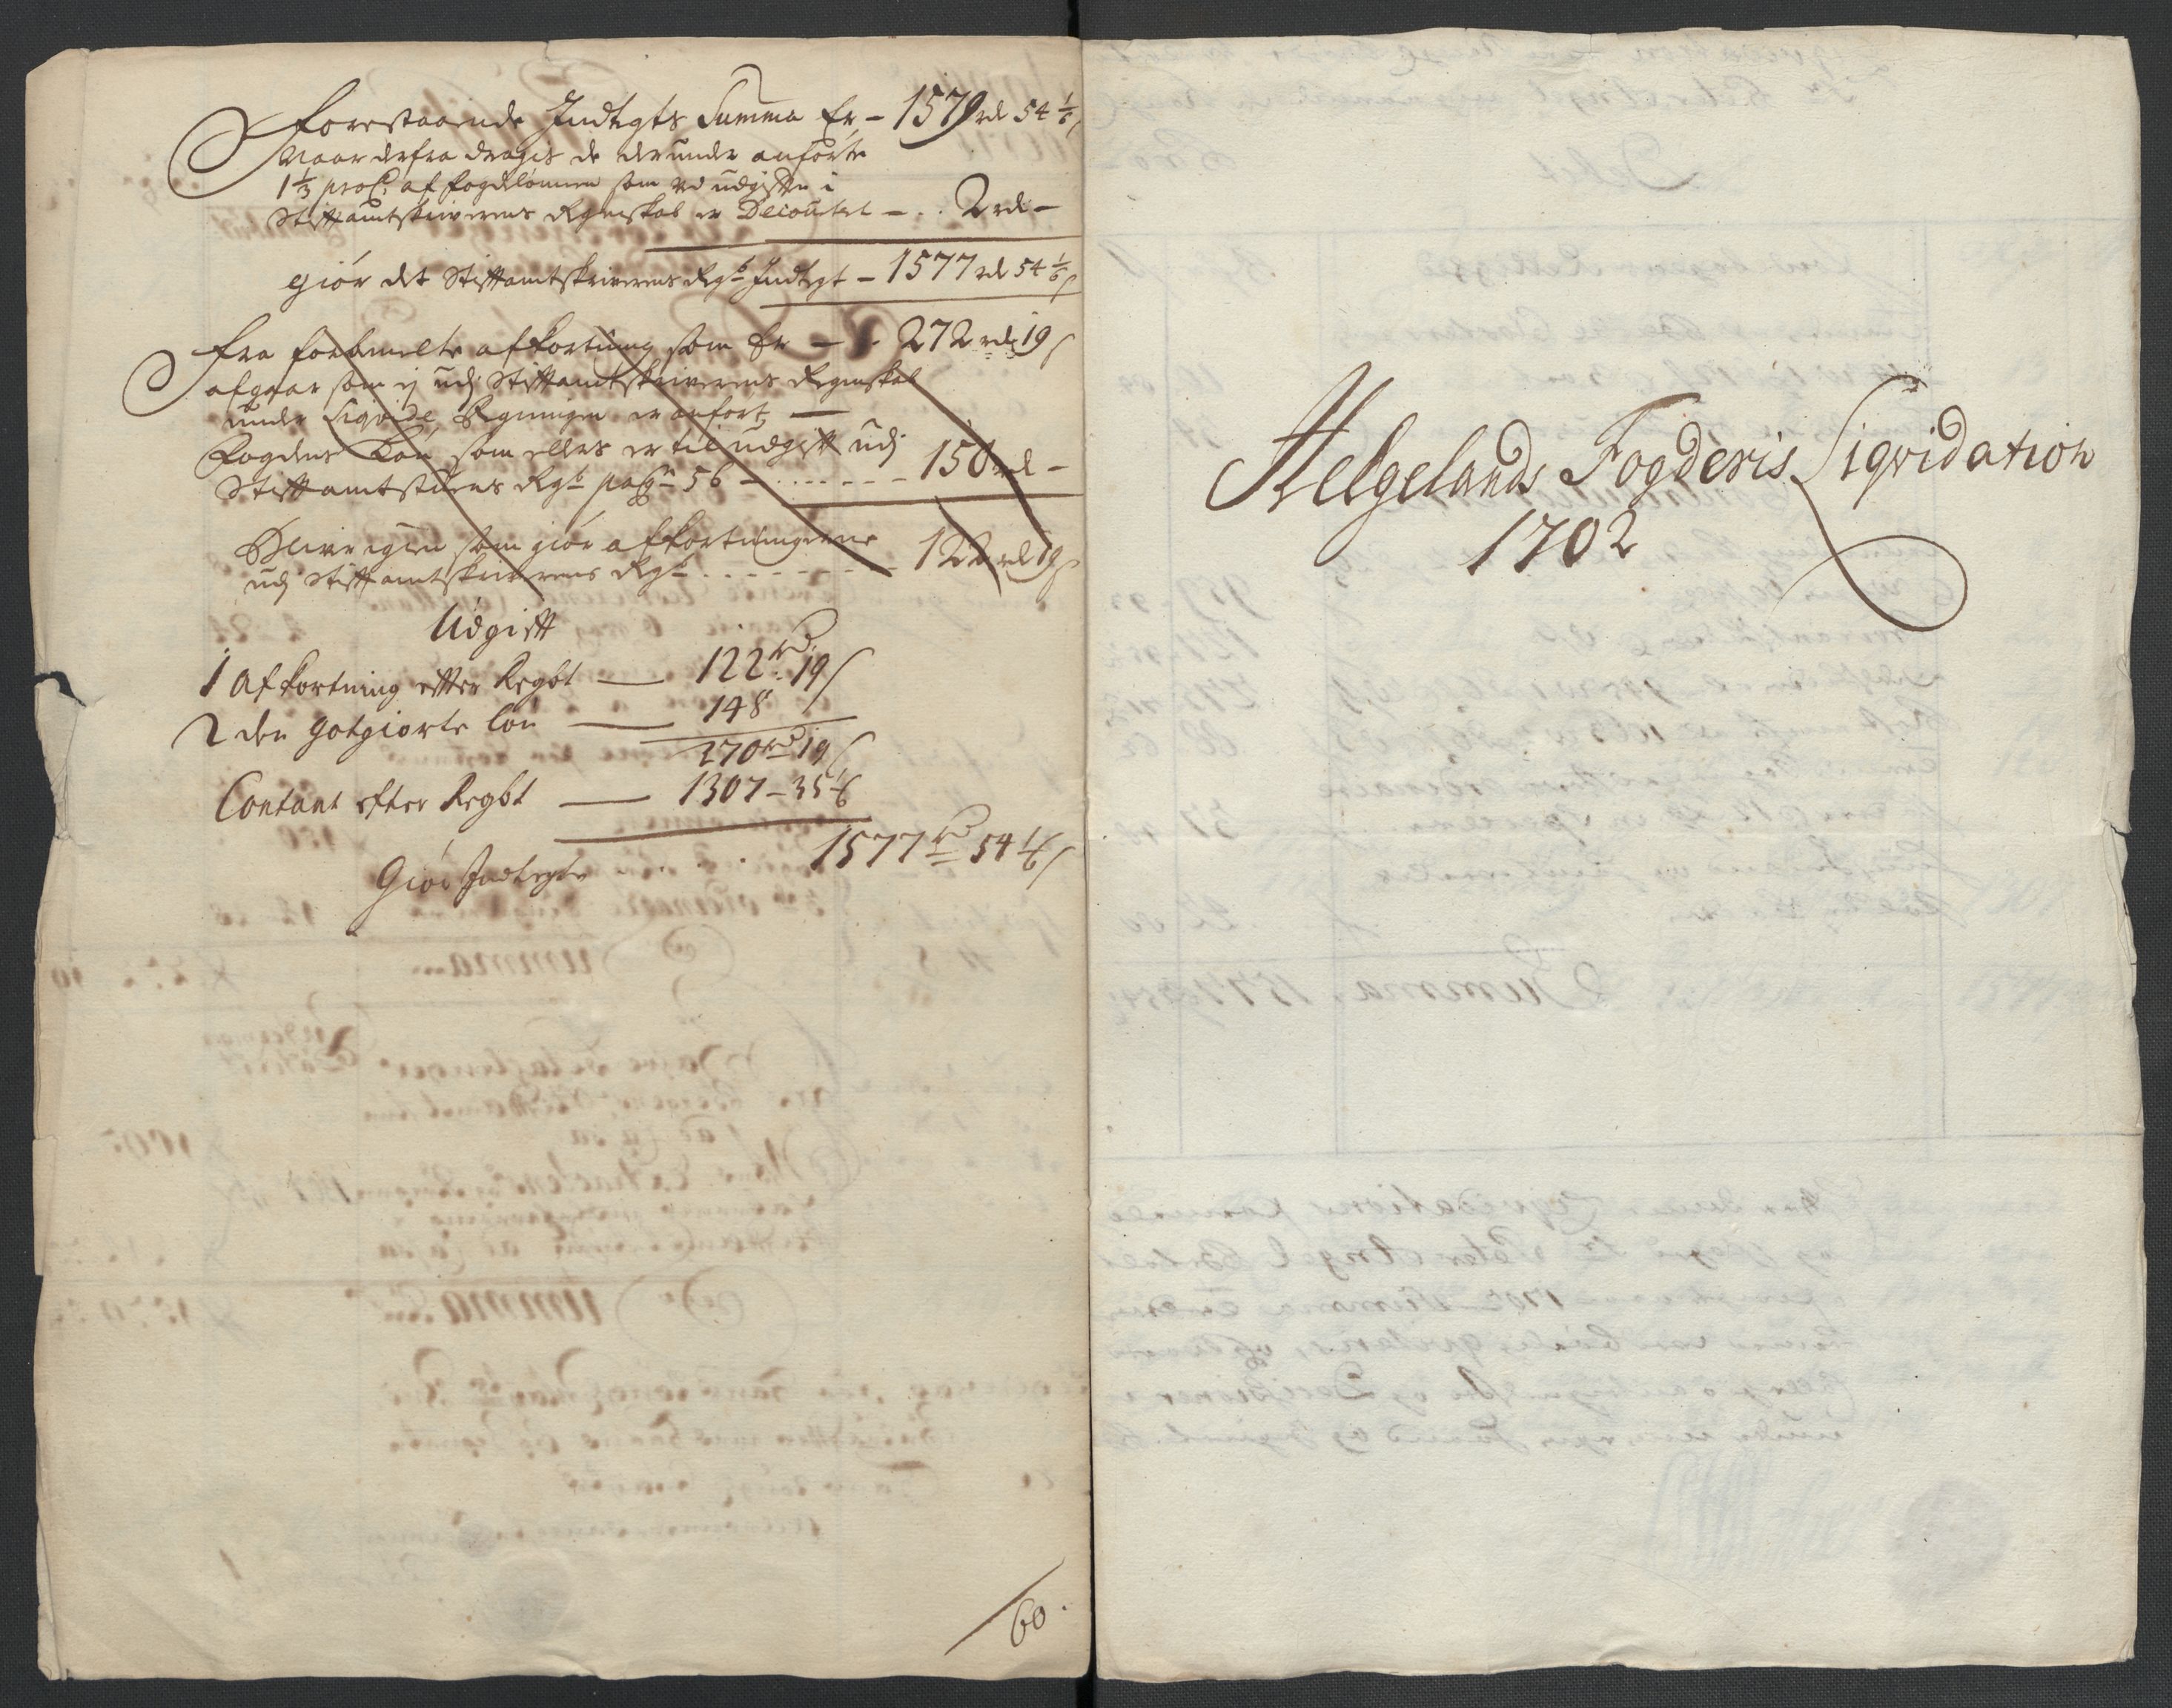 Forestaaende Indtegts Summa Er – 1579 rdr 54 1/6 s
Naar derfra dragis de derunder anførte
1 1/3 proC: af fogdelønnen som ved udgiften i
Stiftamtskriverens Regenskab er Decourtert – . . 2 rdr –
giør det Stiftamtskriverens Regb Indtegt – 1577 rdr 54 1/6 s
Fra forbemelte afkortning som Er – . 272 rdr 19 s
afgaar som ej udj Stiftamtskriverens Regenskab
under Liqvide Regningen er anført, –
Fogdens Løn som ellers er til udgift udj
Stiftamtstuens Regb pag 56 – . . . . . . 150 rdr –
Bliver igien som giør afkortningerne
udj Stiftamtskriverens Regb . . . . . . . . 122 rdr 19 s
Udgift
1 Afkortning efter Regbt — 122 rd 19 s
2 den gotgiorte løn — 148
270 rd 19 s
Contant efter Regbt — 1307 – 35 1/6
Giør Indtegte . . . . 1577 rd 54 1/6 s
60.
Helgelands Fogderis Liqvidation
1702